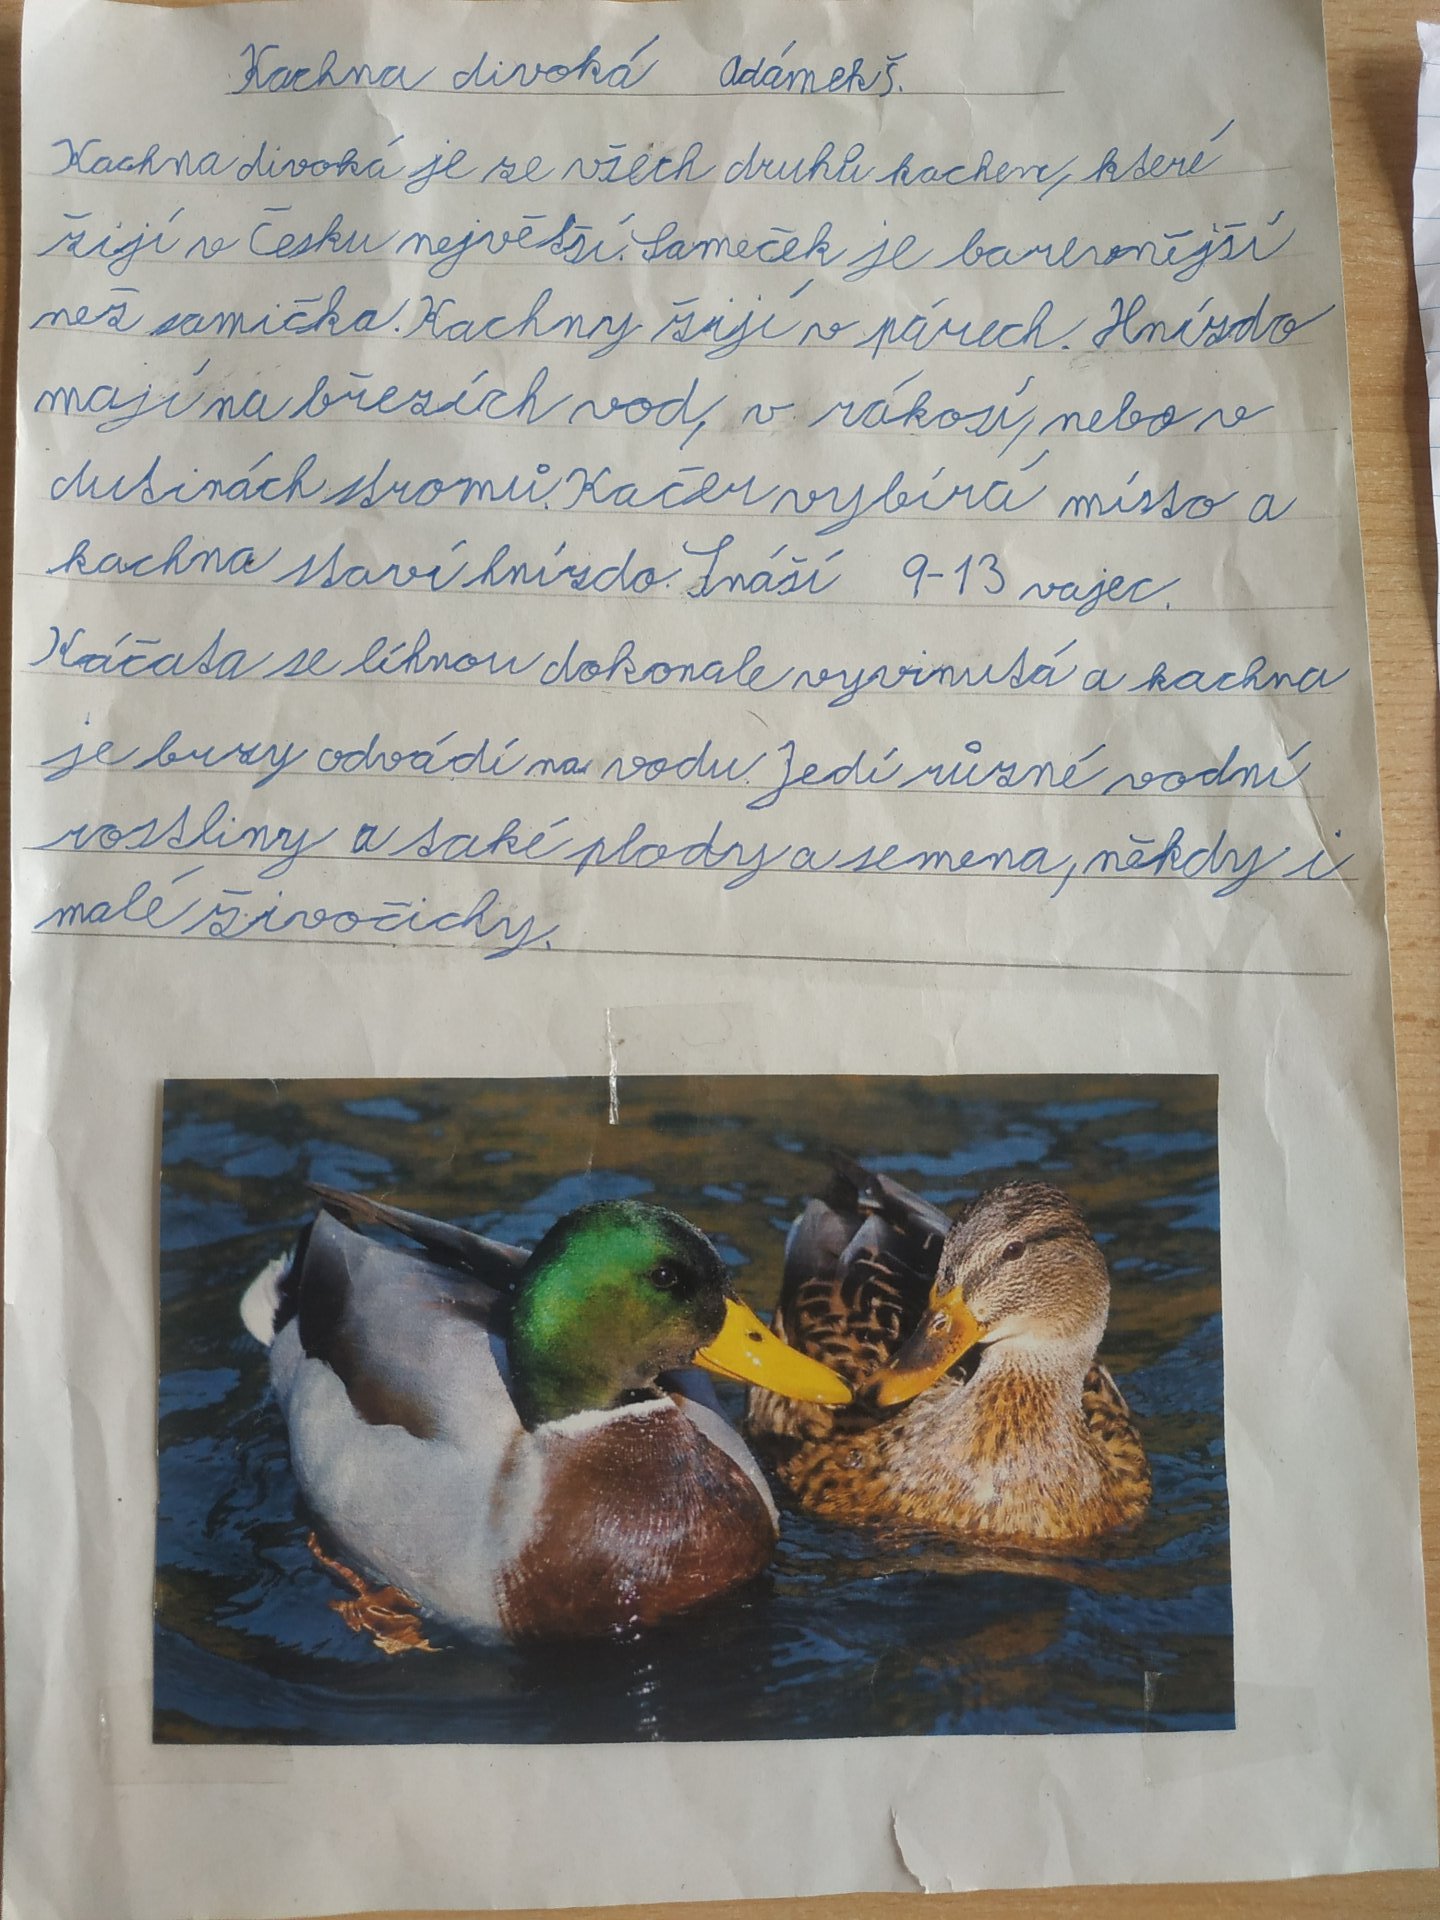 Kachna divoká Adámek Š.
Kachna divoká je ze všech druhů kachen, které
žijí v Česku největší. Sameček je barevnější
než samička. Kachny žijí v párech. Hnízdo
mají na březích vod, v rákosí, nebo v
dutinách stromů. Kačer vybírá místo a
kachna staví hnízdo. Snáší 9-13 vajec.
Káčata se líhnou dokonale vyvinutá a kachna
je brzy odvádí na vodu. Jedí různé vodní
rostliny a také plody a semena, někdy i
malé živočichy.